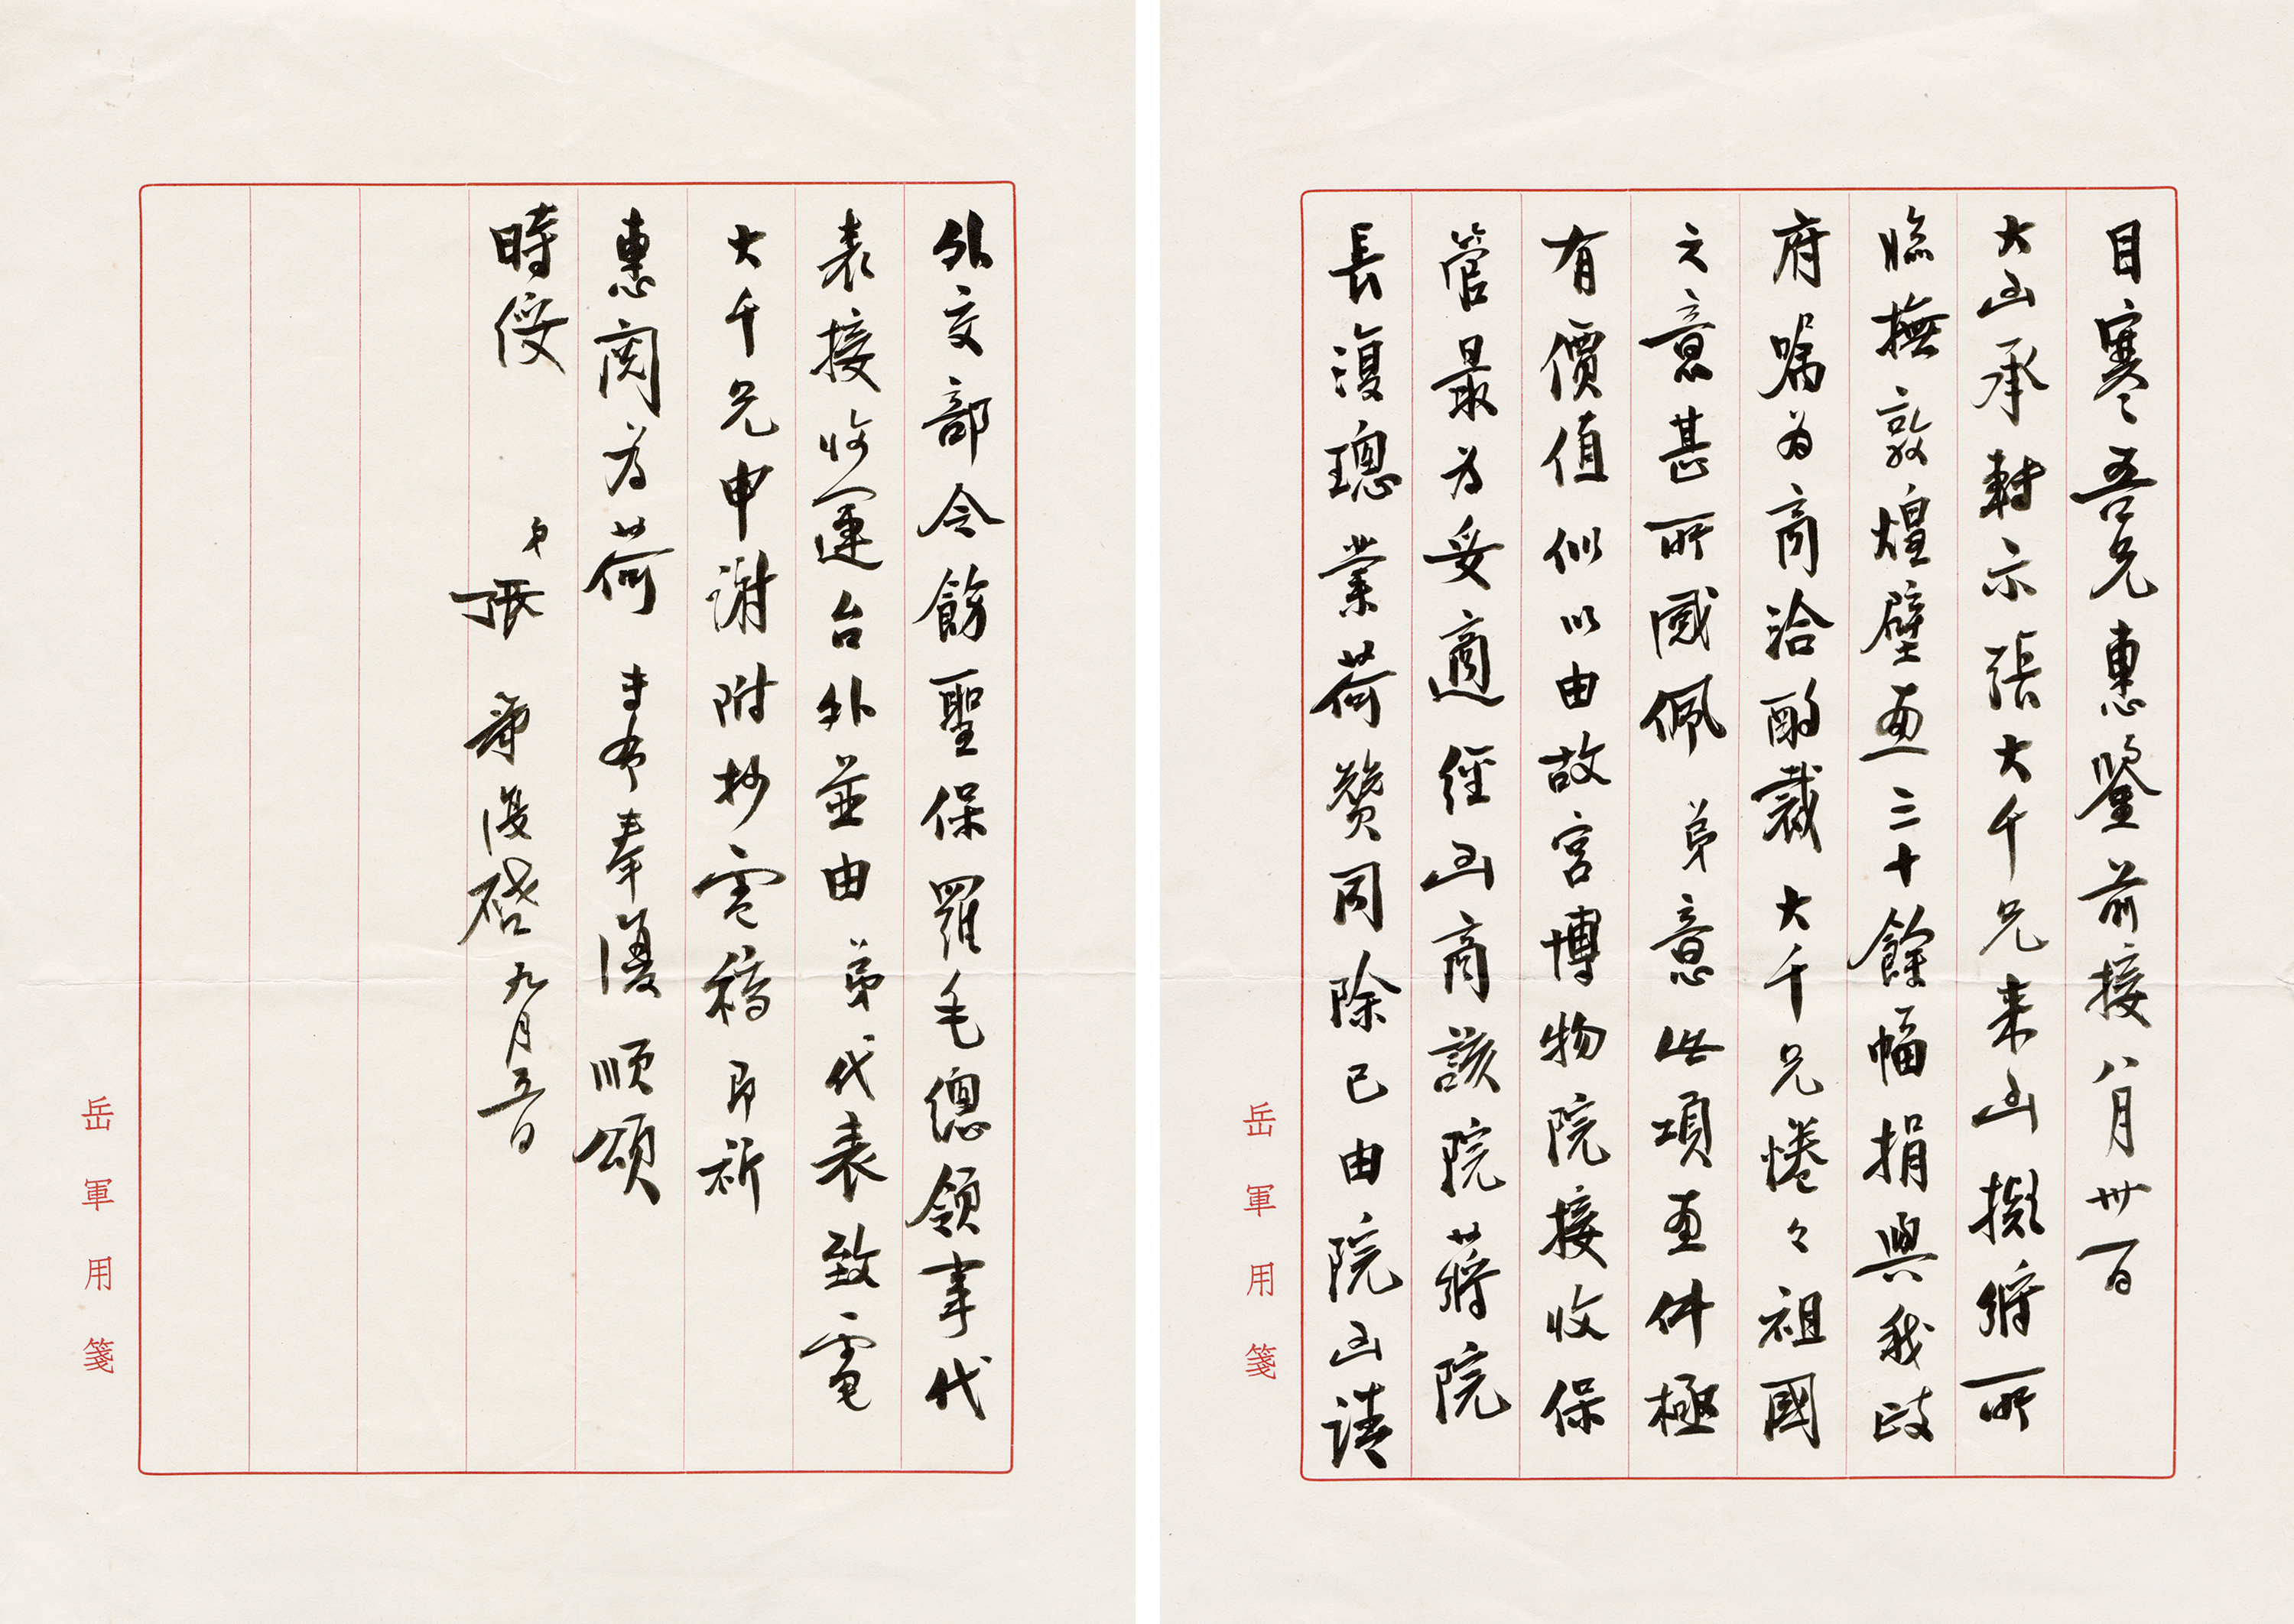 目寒吾兄惠鑒前接八月卅一日
大函承轉示張大千兄來函擬將所
臨撫敦煌壁畫二十餘幅捐與我政
府囑為商洽酌裁大千兄惓々祖國
之意甚所感佩弟意此項畫件極
有價值似以由故宮博物院接收保
管最為妥適經函商該院蔣院
長復璁業荷贊同除已由院函請
岳軍用箋
外交部令飭聖保羅毛總領事代
表接收運台外並由弟代表致電
大千兄申謝附抄電稿即祈
惠閱為荷專布奉復順頌
時綏
弟張羣復啓九月五日
岳軍用箋